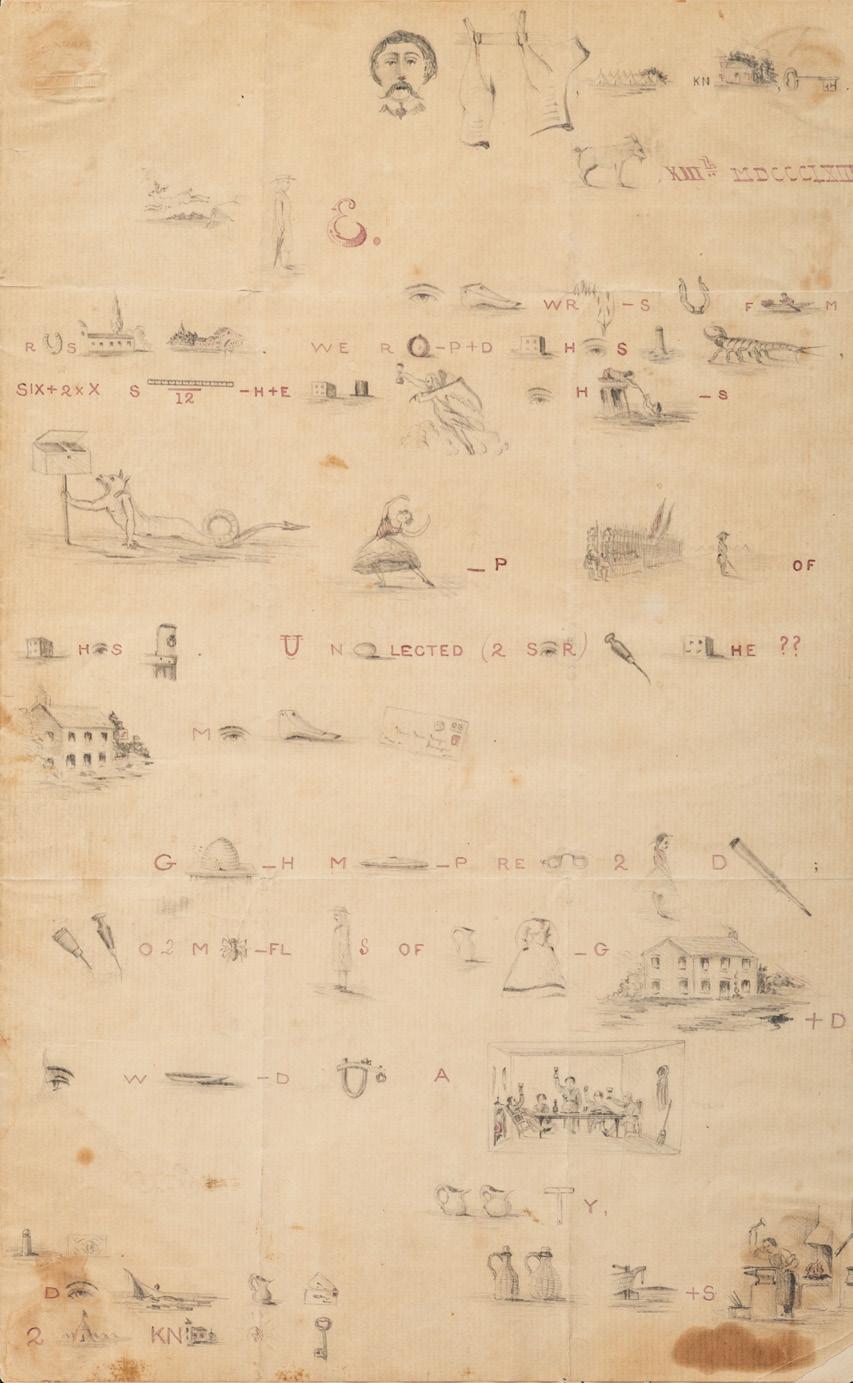 KN
XIIIth MDCCCLXII
E.
WR – S F M
R S . WE R – P + D H S ,
SIX + 2 x X S 12 – H + E H – S
– P OF
H S . U N LECTED (2 S R) HE ??
M
G – H M – P RE 2 D ;
O 2 M – FL S OF – G
+ D
W – D A
T Y,
D + S
2 KN